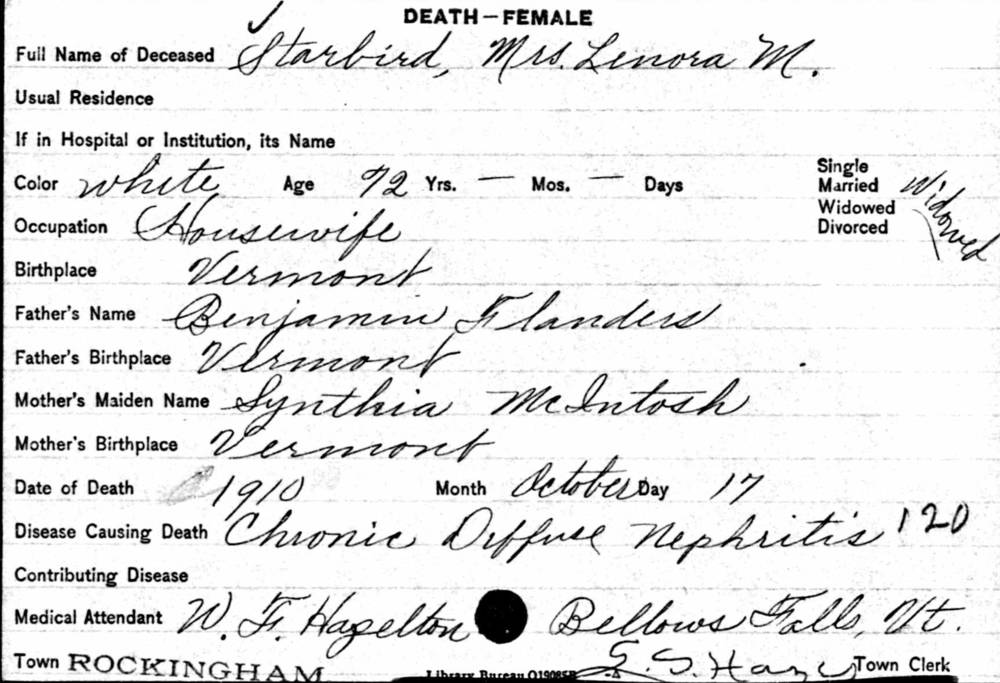 DEATH—FEMALE
Full Name of Deceased Starbird, Mrs. Lenora M.
Usual Residence
If in Hospital or Institution, its Name
Color white Age 72 Yrs. — Mos. — Days Single Married Widowed Divorced Widowed
Occupation Housewife
Birthplace Vermont
Father's Name Benjamin Flanders
Father's Birthplace Vermont
Mother's Maiden Name Synthia McIntosh
Mother's Birthplace Vermont
Date of Death 1910 Month October Day 17
Disease Causing Death Chronic Diffuse Nephritis 120
Contributing Disease
Medical Attendant W. F. Hazelton Bellows Falls, Vt.
Town ROCKINGHAM Library Bureau Town Clerk